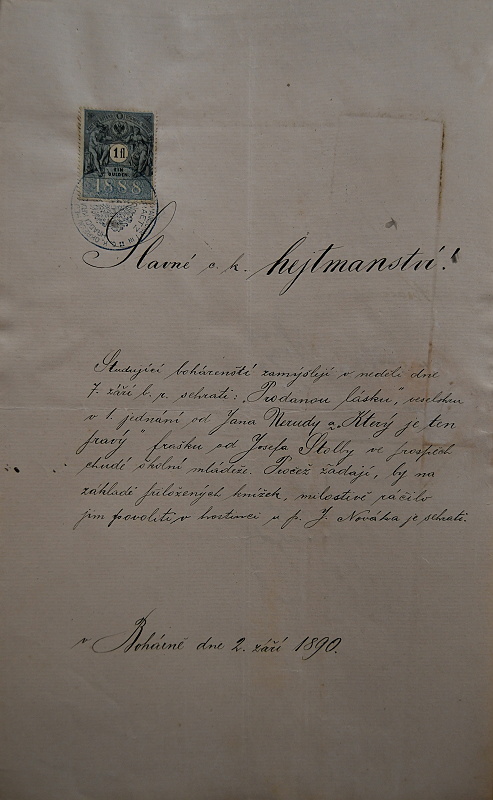 1 fl
EIN
GULDEN
1888
Slavné c. k. hejtmanství!
Studující bohárenští zamýšlejí v neděli dne
7. září b. r. sehrati: „Prodanou lásku", veselohru
v 1. jednání od Jana Nerudy a „Který je ten
pravý" frašku od Josefa Štolby ve prospěch
chudé školní mládeže. Pročež žádají, by na
základě přiložených knížek, milostivě ráčilo
jim povoliti v hostinci u p. J. Nováka je sehrati.
v Bohárně dne 2. září 1890.